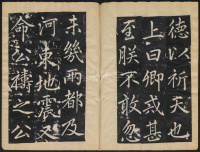 德以祈天也
上曰卿或甚
至朕不敢忽
未幾兩都及
河東地震又
命公禱之公